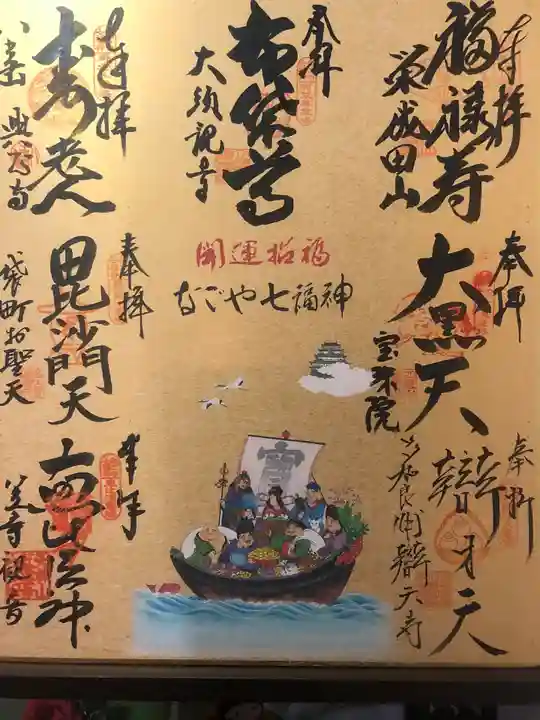 奉拝
福禄寿
栄成田山
奉拝
布袋尊
大須観音
奉拝
寿老人
八事 興正寺
開運招福
なごや七福神
奉拝
大黒天
宝珠院
奉拝
毘沙門天
袋町お聖天
奉拝
辯才天
辯天寺
奉拝
恵比須神
笠寺観音
寶